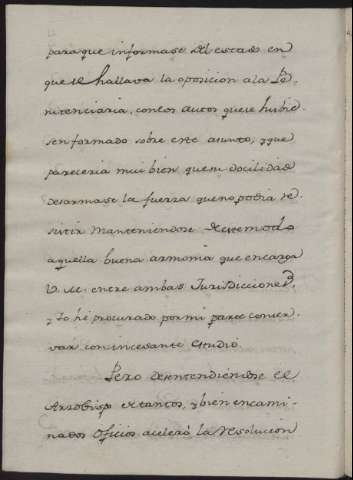 para que informase del estado en
que se hallava la oposicion a la Pe-
nitenciaria, con los autos que se hubie-
sen formado sobre este asunto, y que
pareceria mui bien que mi docilidad
desarmase la fuerza que no podia re-
sistir manteniendose de este modo
aquella buena armonia que encarga
V. M. entre ambas Jurisdicciones,
y Yo hé procurado por mi parte conser-
var con incesante estudio.
Pero desentendiendose el
Arzobispo de tantos, y bien encami-
nados oficios aceleró la resolucion